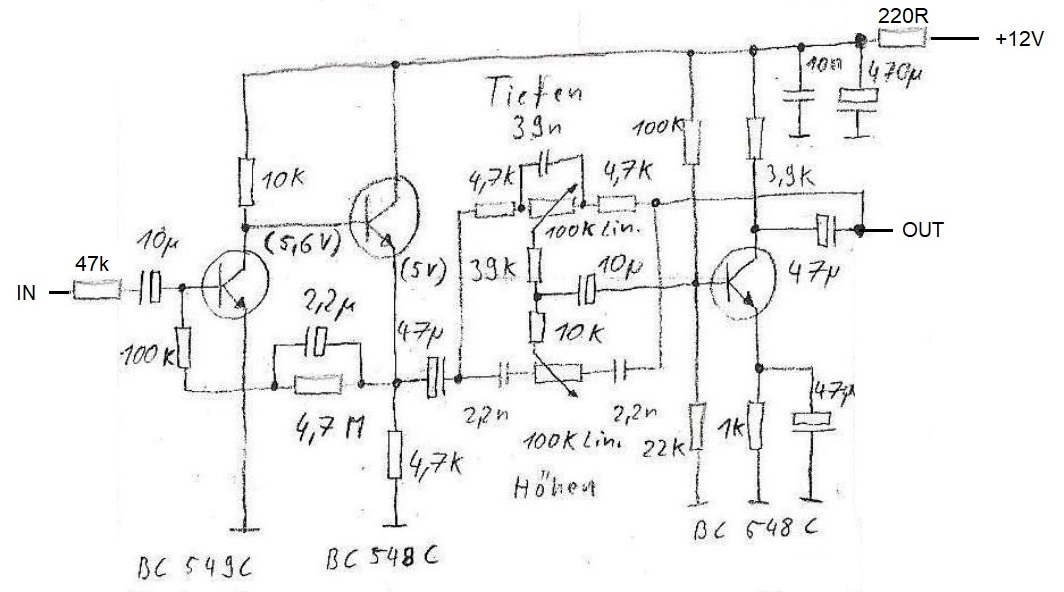 220R
+12V
10n
470µ
Tiefen
39n
100K
4,7K
4,7K
3,9K
10K
100K Lin.
(5,6V)
OUT
10µ
(5V)
39K
10µ
47µ
47k
IN
2,2µ
47µ
10K
100K
47µ
4,7M
2,2n
2,2n
100K Lin.
22K
1K
4,7K
Höhen
BC 549C
BC 548C
BC 548C